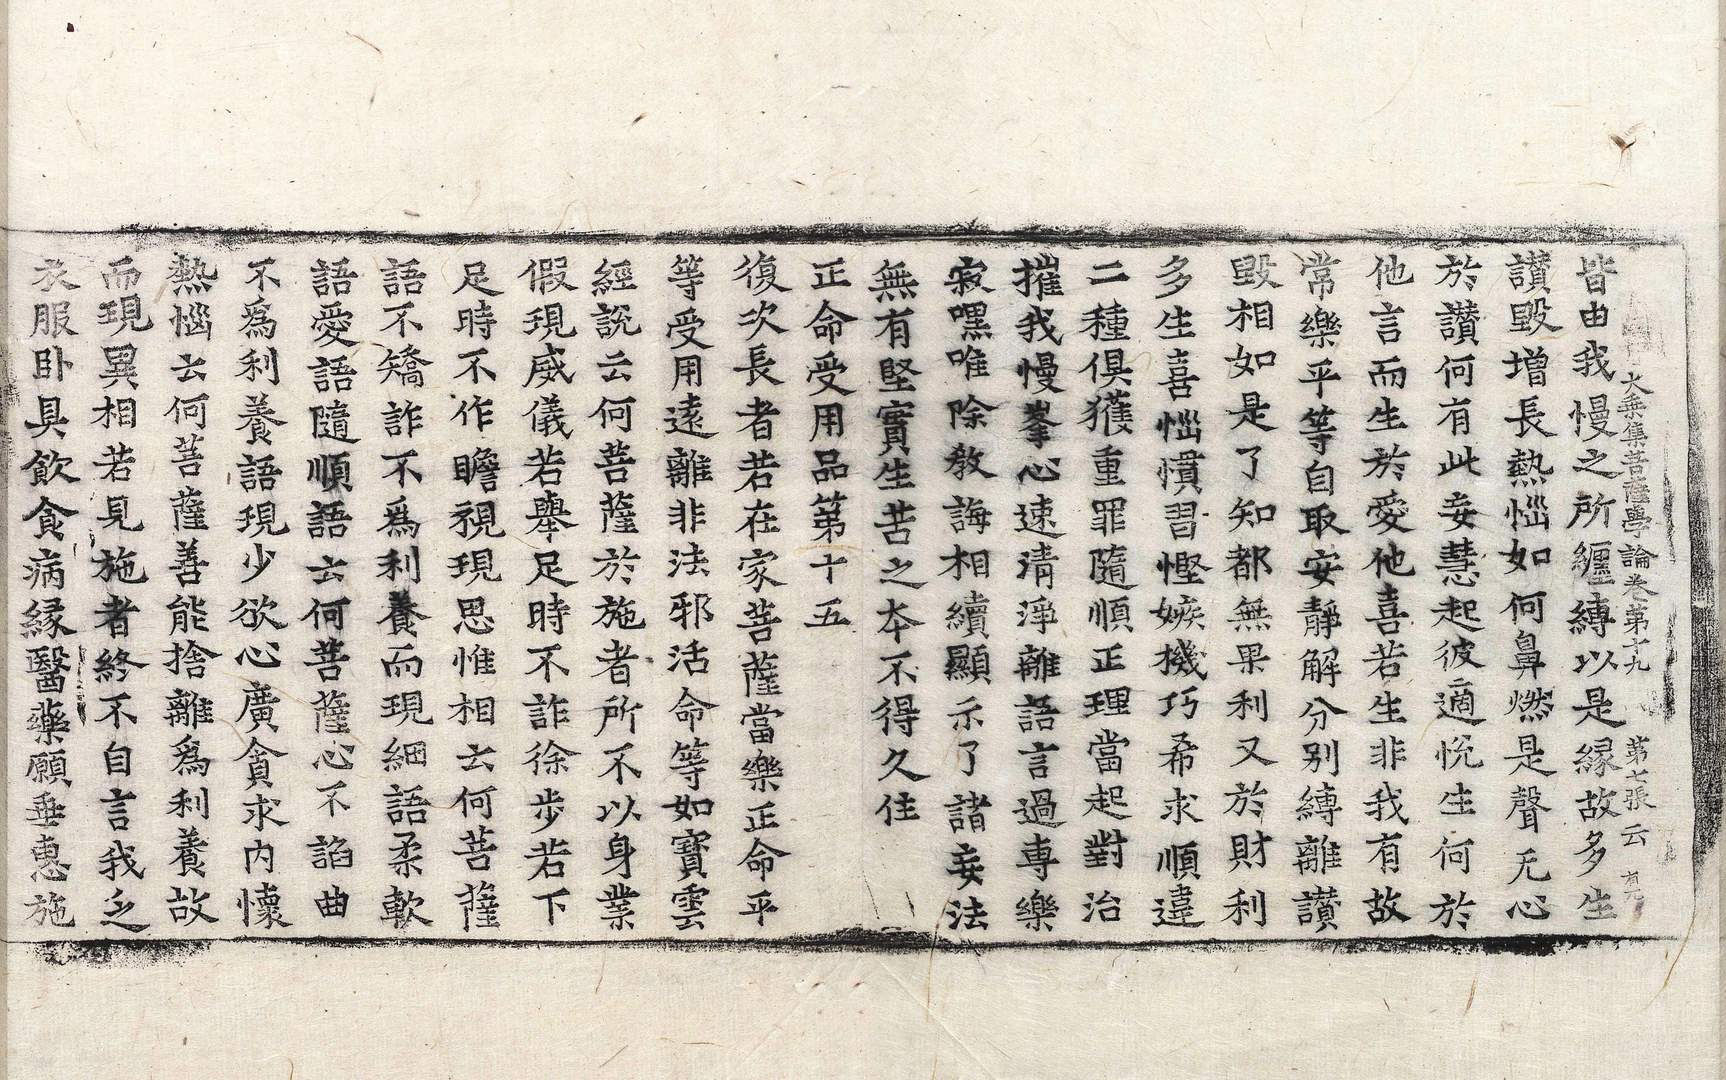 大乗集菩薩學論卷第十九 第七張 云
皆由我慢之所纏縛以是緣故多生
讃毀增長熱惱如何鼻燃是聲无心
於讃何有此妄慧起彼適悅生何於
他言而生於愛他喜若生非我有故
常樂平等自取安靜解分別縛離讃
毀相如是了知都無果利又於財利
多生喜惱慣習慳嫉機巧希求順違
二種俱獲重罪隨順正理當起對治
摧我慢峯心速清淨離語言過專樂
寂嘿唯除教誨相續顯示了諸妄法
無有堅實生苦之本不得久住
正命受用品第十五
復次長者若在家菩薩當樂正命平
等受用遠離非法邪活命等如寶雲
經說云何菩薩於施者所不以身業
假現威儀若舉足時不詐徐步若下
足時不作瞻視現思惟相云何菩薩
語不矯詐不爲利養而現細語柔軟
語愛語隨順語云何菩薩心不諂曲
不爲利養語現少欲心廣貪求内懷
熱惱云何菩薩善能捨離爲利養故
而現異相若見施者終不自言我乏
衣服卧具飲食病緣醫藥願垂惠施